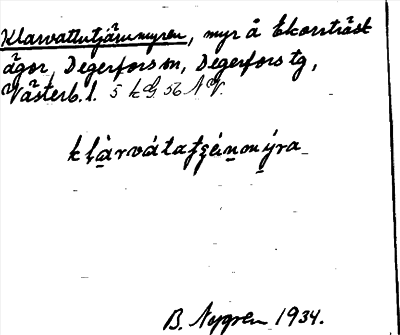 Klarvattutjärnmyren, myr å Ekorrträsk
ägor, Degerfors sn, Degerfors tg,
Västerb. l. 5 kG 56 NV.
B. Nygren 1934.